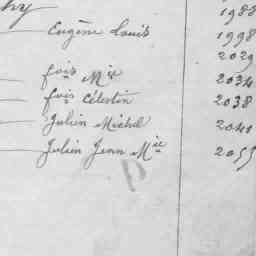 hy 1988
Eugène Louis 1998
2029
fois Mie 2034
fois Célestin 2038
Julien Michel 2041
Julien Jean Mie 2055
D